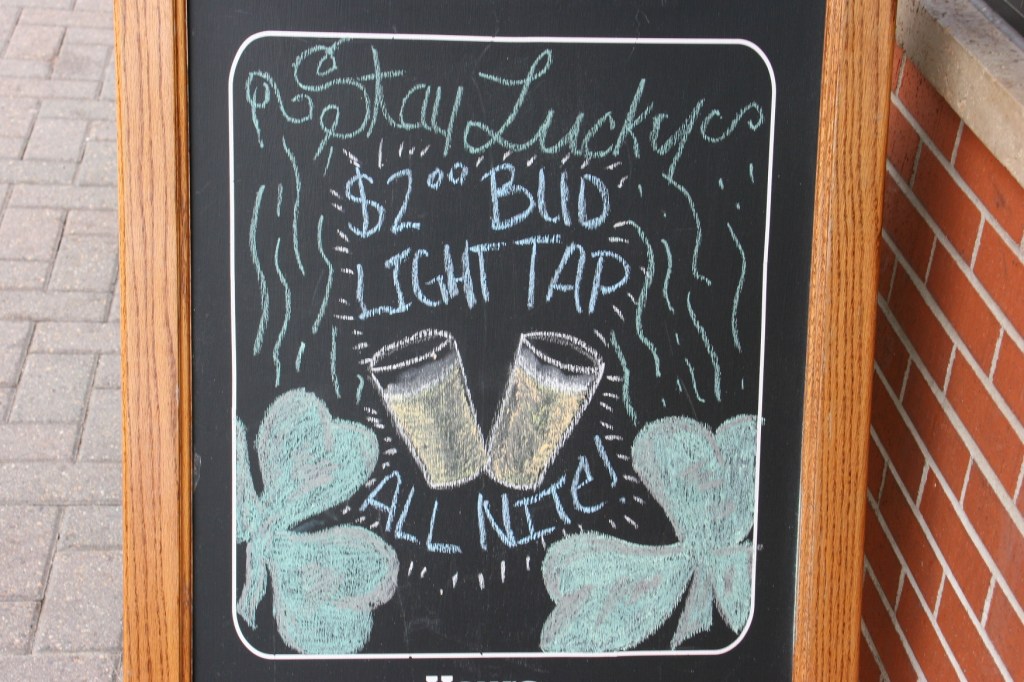 Stay Lucky
$2.00 BUD
LIGHT TAP
ALL NITE!